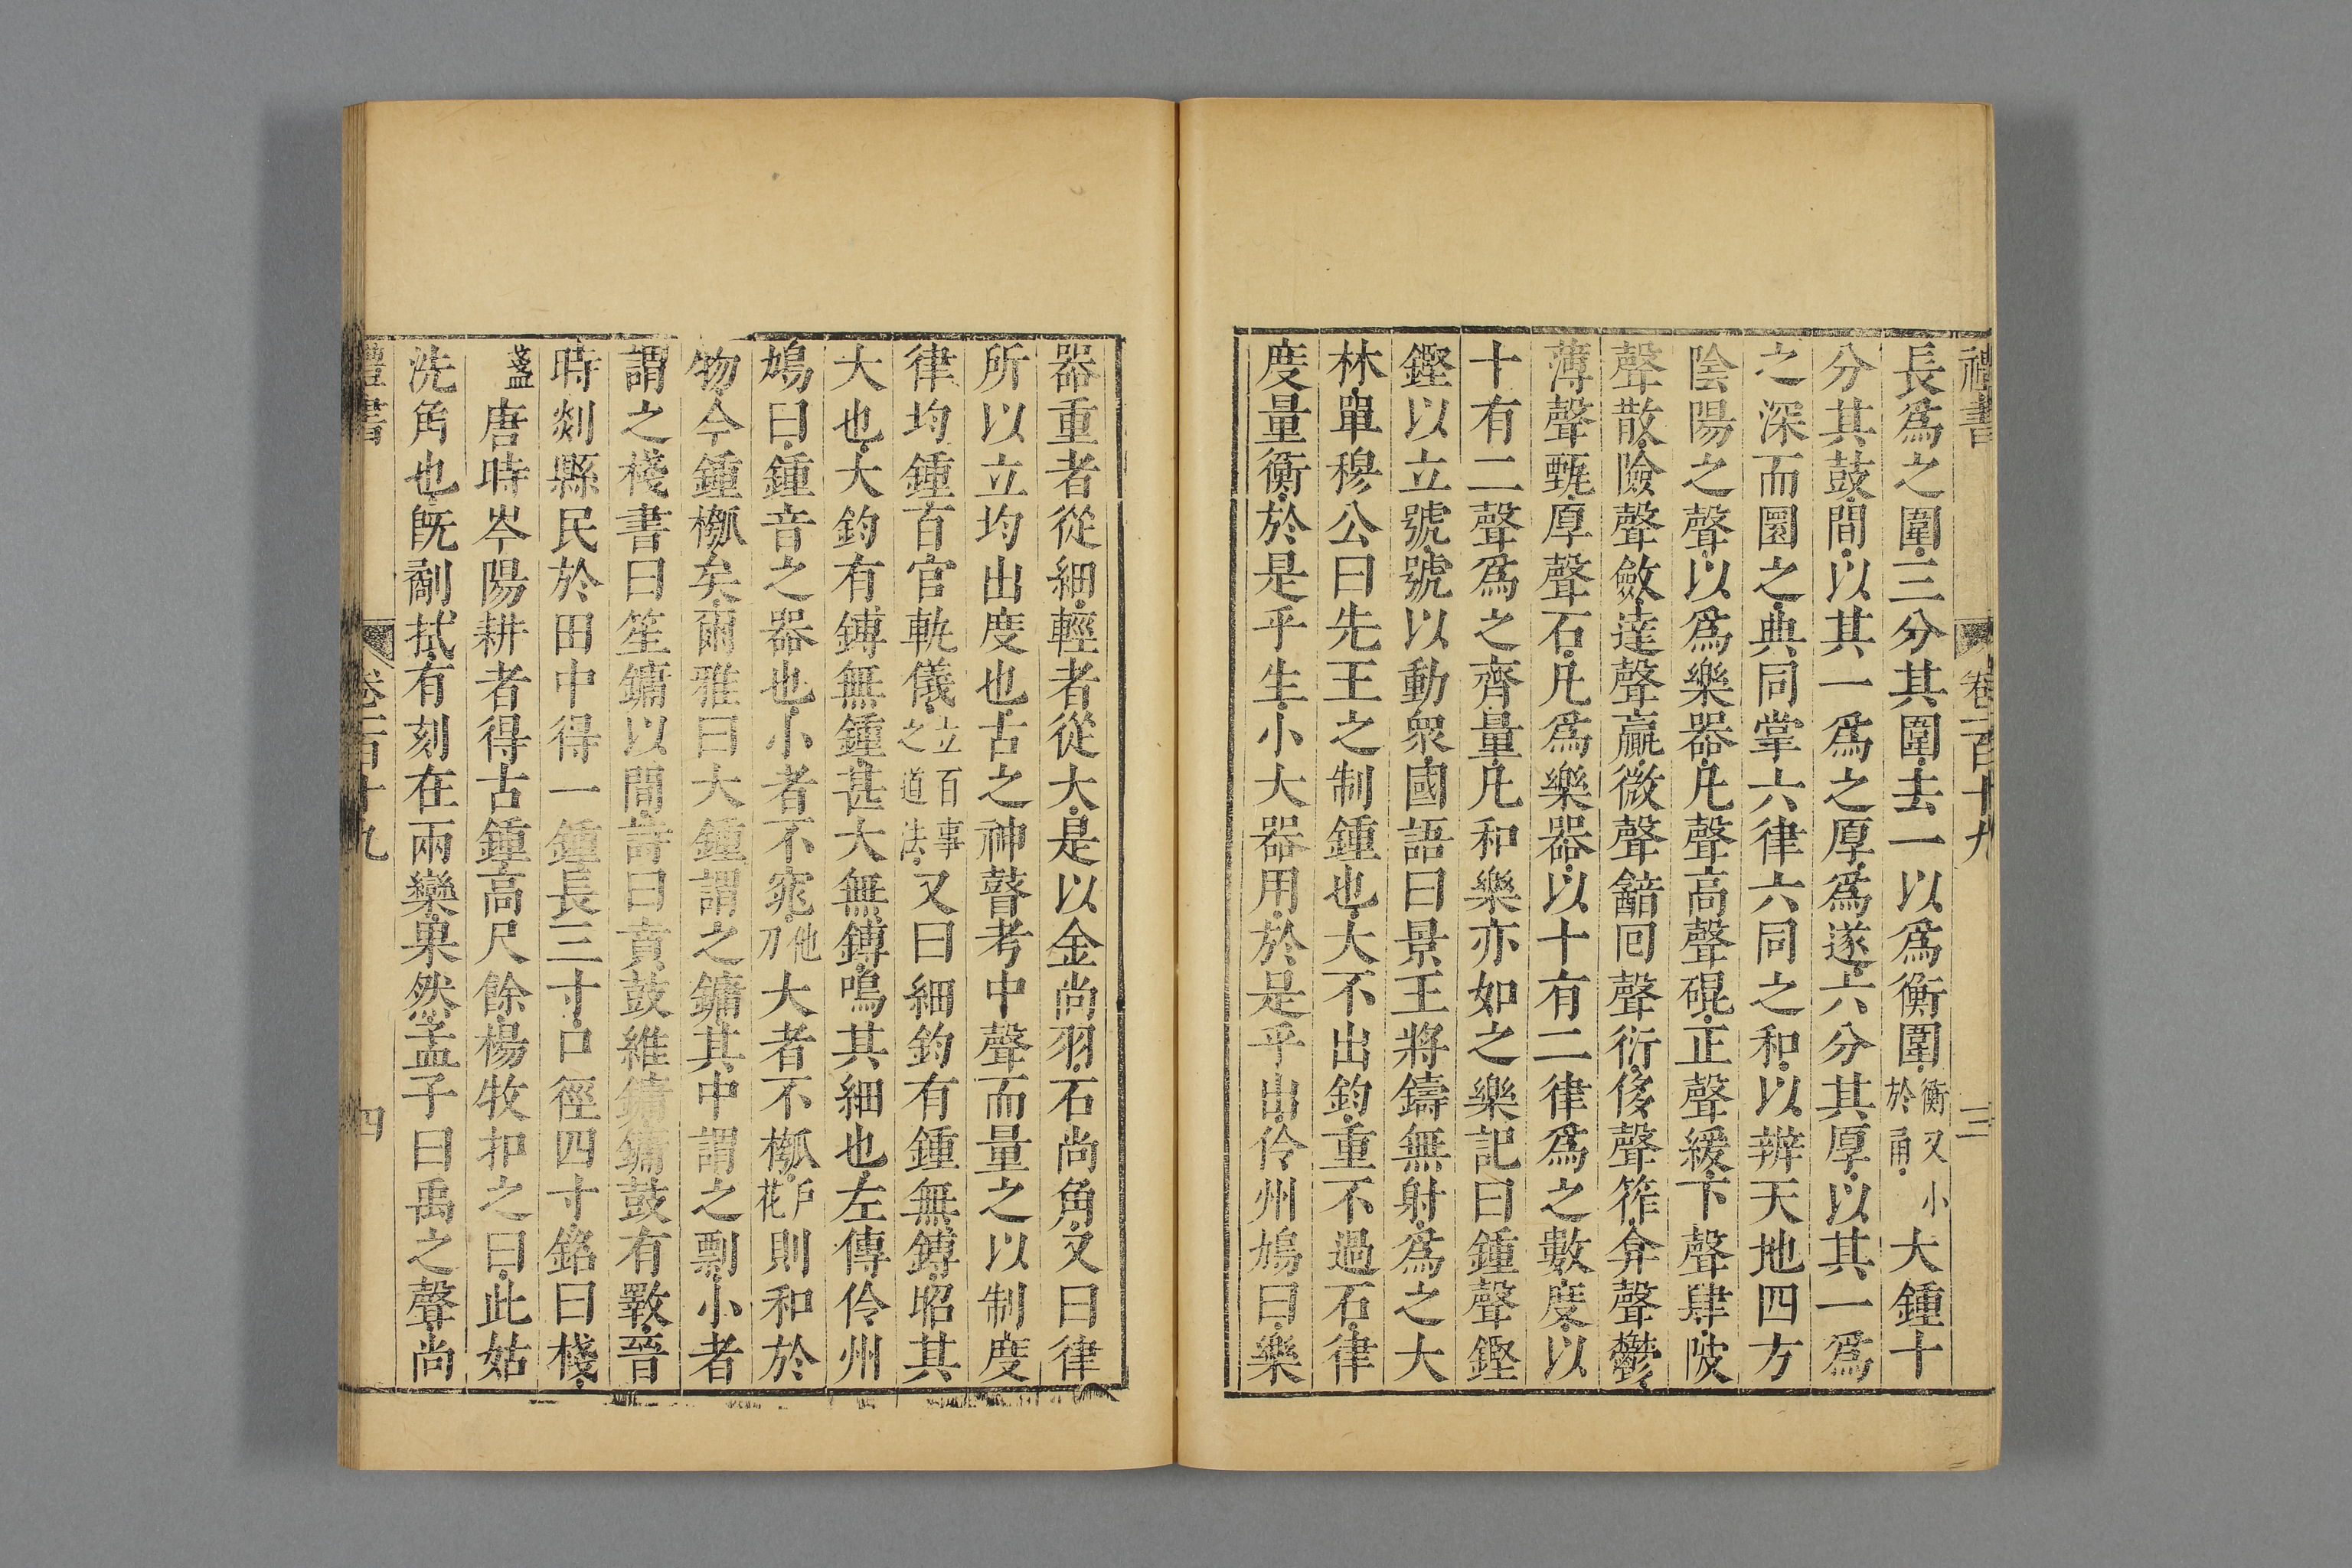 禮書 卷一百十九 三
長爲之圍三分其圍去一以爲衡圍衡又小於甬大鍾十
分其鼓間以其一爲之厚爲遂六分其厚以其一爲
之深而圜之典同掌六律六同之和以辨天地四方
陰陽之聲以爲樂器凡聲高聲硍正聲緩下聲肆陂
聲散險聲斂達聲贏微聲韽回聲衍侈聲筰弇聲鬱
薄聲甄厚聲石凡爲樂器以十有二律爲之數度以
十有二聲爲之齊量凡和樂亦如之樂記曰鍾聲鏗
鏗以立號號以動衆國語曰景王將鑄無射爲之大
林單穆公曰先王之制鍾也大不出鈞重不過石律
度量衡於是乎生小大器用於是乎出伶州鳩曰樂
器重者從細輕者從大是以金尚羽石尚角又曰律
所以立均出度也古之神瞽考中聲而量之以制度
律均鍾百官軌儀立百事之道法又曰細鈞有鍾無鎛昭其
大也大鈞有鎛無鍾甚大無鎛鳴其細也左傳伶州
鳩曰鍾音之器也小者不窕他刀大者不槬戶花則和於
物今鍾槬矣爾雅曰大鍾謂之鏞其中謂之剽小者
謂之棧書曰笙鏞以間詩曰賁鼓維鏞鏞鼓有斁晉
時剡縣民於田中得一鍾長三寸口徑四寸銘曰棧
盞唐時岑陽耕者得古鍾高尺餘楊牧扣之曰此姑
洗角也旣劀拭有刻在兩欒果然孟子曰禹之聲尚
禮書 卷一百十九 四